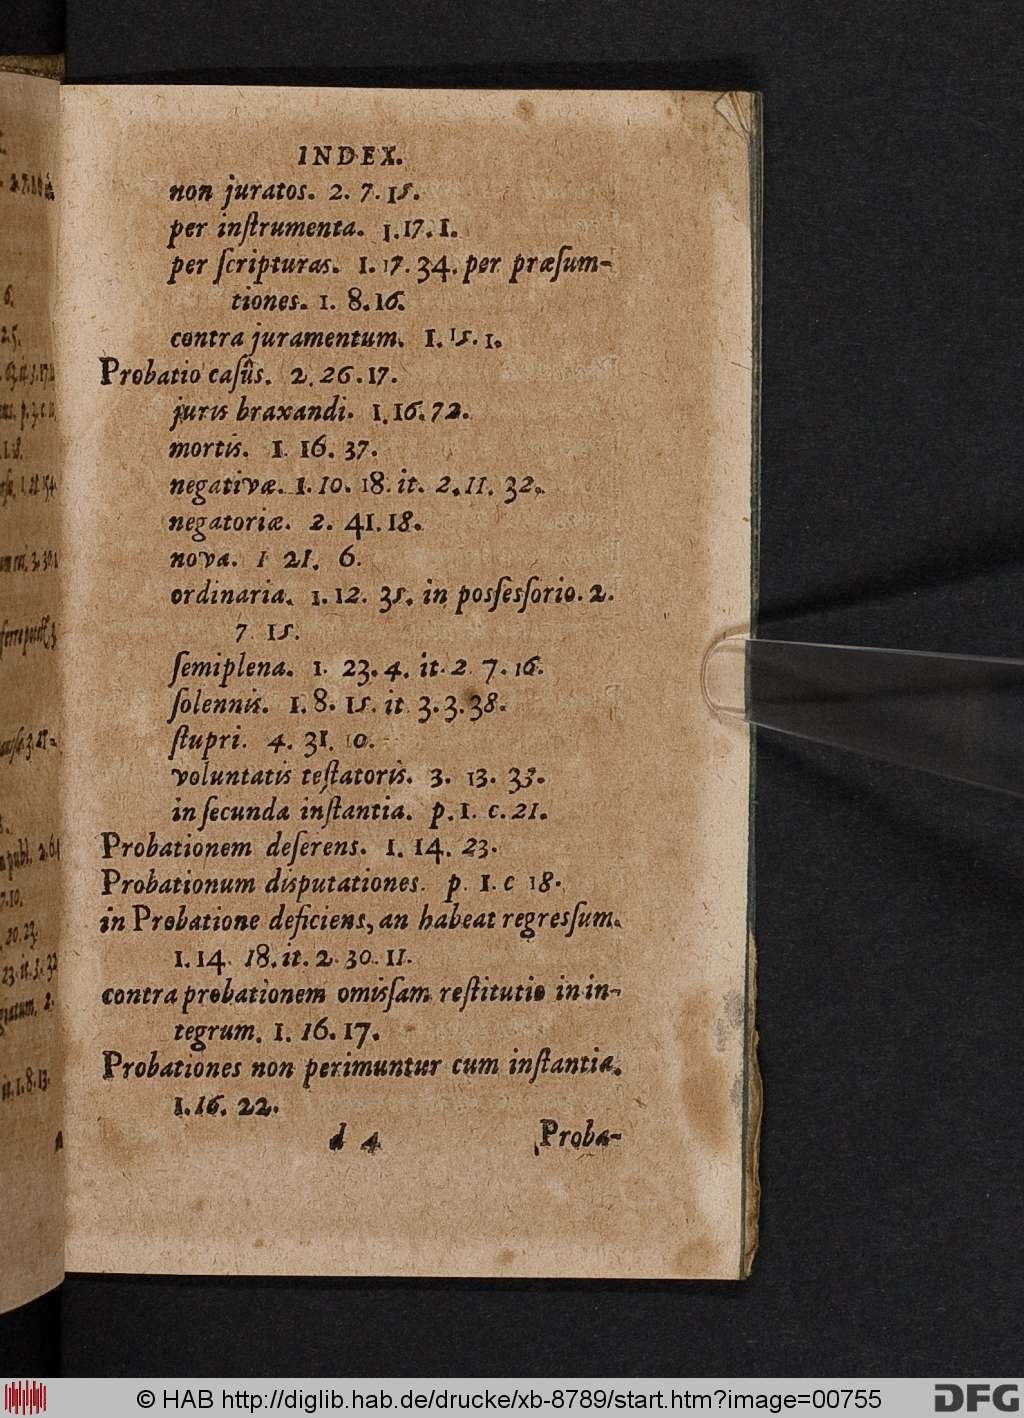 INDEX.
non juratos. 2. 7. 15.
per inſtrumenta. 1. 17. 1.
per ſcripturas. 1. 17. 34. per præſum-
tiones. 1. 8. 16.
contra juramentum. 1. 15. 1.
Probatio caſûs. 2. 26. 17.
juris braxandi. 1. 16. 72.
mortis. 1. 16. 37.
negativæ. 1. 10. 18. it. 2. 11. 32.
negatoriæ. 2. 41. 18.
nova. 1 21. 6.
ordinaria. 1. 12. 35. in posſesſorio. 2.
7 15.
ſemiplena. 1. 23. 4. it. 2 7. 16.
ſolennis. 1. 8. 15. it 3. 3. 38.
ſtupri. 4. 31. 10.
voluntatis teſtatoris. 3. 13. 33.
in ſecunda inſtantia. p. 1. c. 21.
Probationem deſerens. 1. 14. 23.
Probationum disputationes. p. 1. c 18.
in Probatione deficiens, an habeat regresſum.
1. 14. 18. it. 2. 30. 11.
contra probationem omisſam reſtitutio in in-
tegrum. 1. 16. 17.
Probationes non perimuntur cum inſtantia.
1. 16. 22.
d 4 Proba-
© HAB http://diglib.hab.de/drucke/xb-8789/start.htm?image=00755
DFG